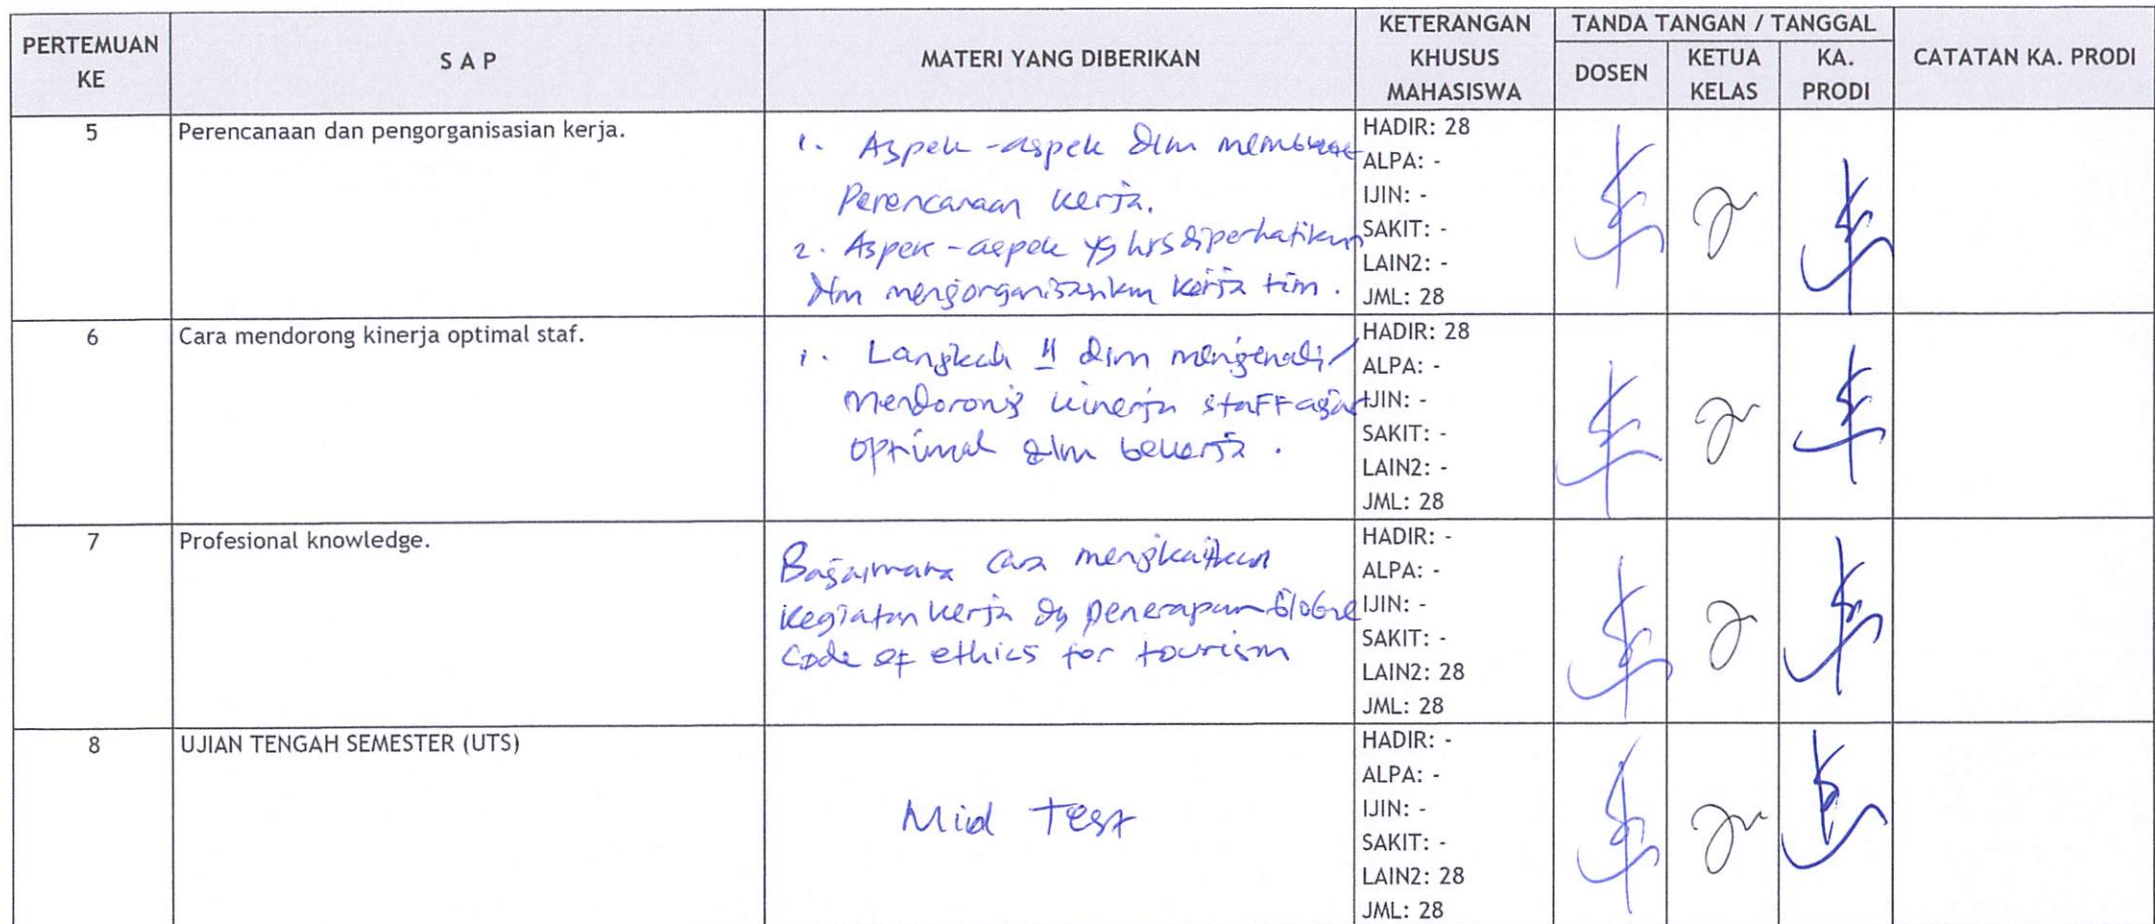 PERTEMUAN KE
S A P
MATERI YANG DIBERIKAN
KETERANGAN KHUSUS MAHASISWA
TANDA TANGAN / TANGGAL
DOSEN
KETUA KELAS
KA. PRODI
CATATAN KA. PRODI
5
Perencanaan dan pengorganisasian kerja.
1. Aspek-aspek dlm membuat
Perencanaan kerja.
2. Aspek-aspek yg hrs diperhatikan
dlm mengorganisasikan kerja tim.
HADIR: 28
ALPA: -
IJIN: -
SAKIT: -
LAIN2: -
JML: 28
6
Cara mendorong kinerja optimal staf.
1. Langkah " dlm mengenali/
mendorong kinerja staff agar
optimal dlm bekerja.
HADIR: 28
ALPA: -
IJIN: -
SAKIT: -
LAIN2: -
JML: 28
7
Profesional knowledge.
Bagaimana cara mengkaitkan
kegiatan kerja dg penerapan
Code of ethics for tourism
HADIR: -
ALPA: -
IJIN: -
SAKIT: -
LAIN2: 28
JML: 28
8
UJIAN TENGAH SEMESTER (UTS)
Mid Test
HADIR: -
ALPA: -
IJIN: -
SAKIT: -
LAIN2: 28
JML: 28